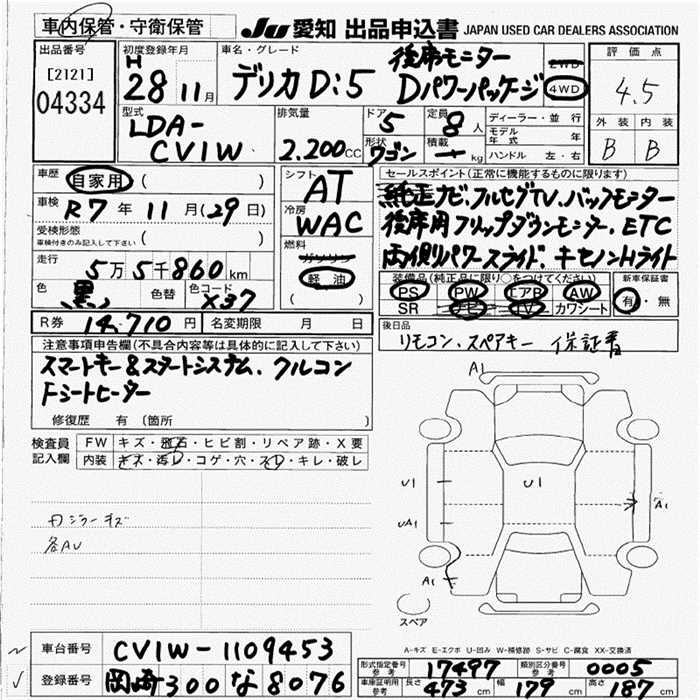 車内保管・守衛保管 JU 愛知 出品申込書 JAPAN USED CAR DEALERS ASSOCIATION
出品番号 初度登録年月 車名・グレード 評価点
[2121] H 28 11月 デリカD:5 後席モニター 2WD 4.5
04334 Dパワーパッケージ 4WD
型式 排気量 ドア 定員 ディーラー・並行 外装 内装
LDA- 5 8人 モデル年式 年
CV1W 2.200cc 形状 ワゴン 積載 ー kg ハンドル 左・右 B B
車歴 自家用 ( ) シフト AT セールスポイント(正常に機能するものに限ります)
車検 R7年11月(29日) 冷房 WAC 純正ナビ.フルセグTV.バックモニター
受検形態 ( ) 後席用フリップダウンモニター.ETC
車検付きのみ記入して下さい 燃料 ガソリン 両側パワースライド.キセノンHライト
走行 5万5千860km 軽油 装備品(純正品に限り○をつけてください) 新車保証書
色 黒 色替 色コード X37 ( ) PS PW エアB AW 有・無
SR ナビ TV カワシート
R券 14,710円 名変期限 月 日 後日品
リモコン、スペアキー 保証書
注意事項申告欄(不具合内容等は具体的に記入して下さい)
スマートキー&スタートシステム.クルコン
Fシートヒーター
修復歴 有 (箇所 )
検査員 FW キズ・飛石・ヒビ割・リペア跡・X要
記入欄 内装 キズ・汚レ・コゲ・穴・スレ・キレ・破レ
A1
U1 U1 A1
UA1
A1
ミラーキズ
各AU
スペア
A-キズ E-エクボ U-凹み W-補修跡 S-サビ C-腐食 XX-交換済
車台番号 CV1W-1109453
登録番号 岡崎 300 な 8076
形式指定番号 参考 17497 類別区分番号 参考 0005
車庫証明用 参考 長さ 473cm 幅 179cm 高さ 187cm